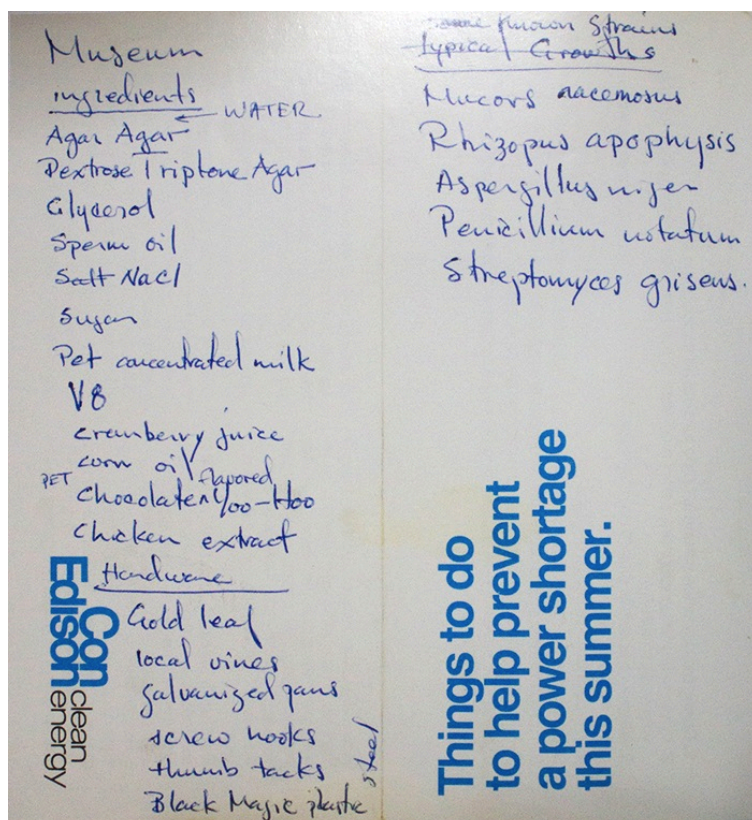 Museum
ingredients
WATER
Agar Agar
Dextrose Triptone Agar
Glycerol
Sperm oil
Salt NaCl
Sugar
Pet concentrated milk
V8
cranberry juice
corn oil
PET flavored
Chocolate Yoo-Hoo
Chicken extract
Hardware
Gold leaf
local vines
galvanized pans
screw hooks
thumb tacks
steel
Black Magic plastic
known Strains
typical Growths
Mucors racemosus
Rhizopus apophysis
Aspergillus niger
Penicillium notatum
Streptomyces griseus.
Con
Edison
clean
energy
Things to do
to help prevent
a power shortage
this summer.